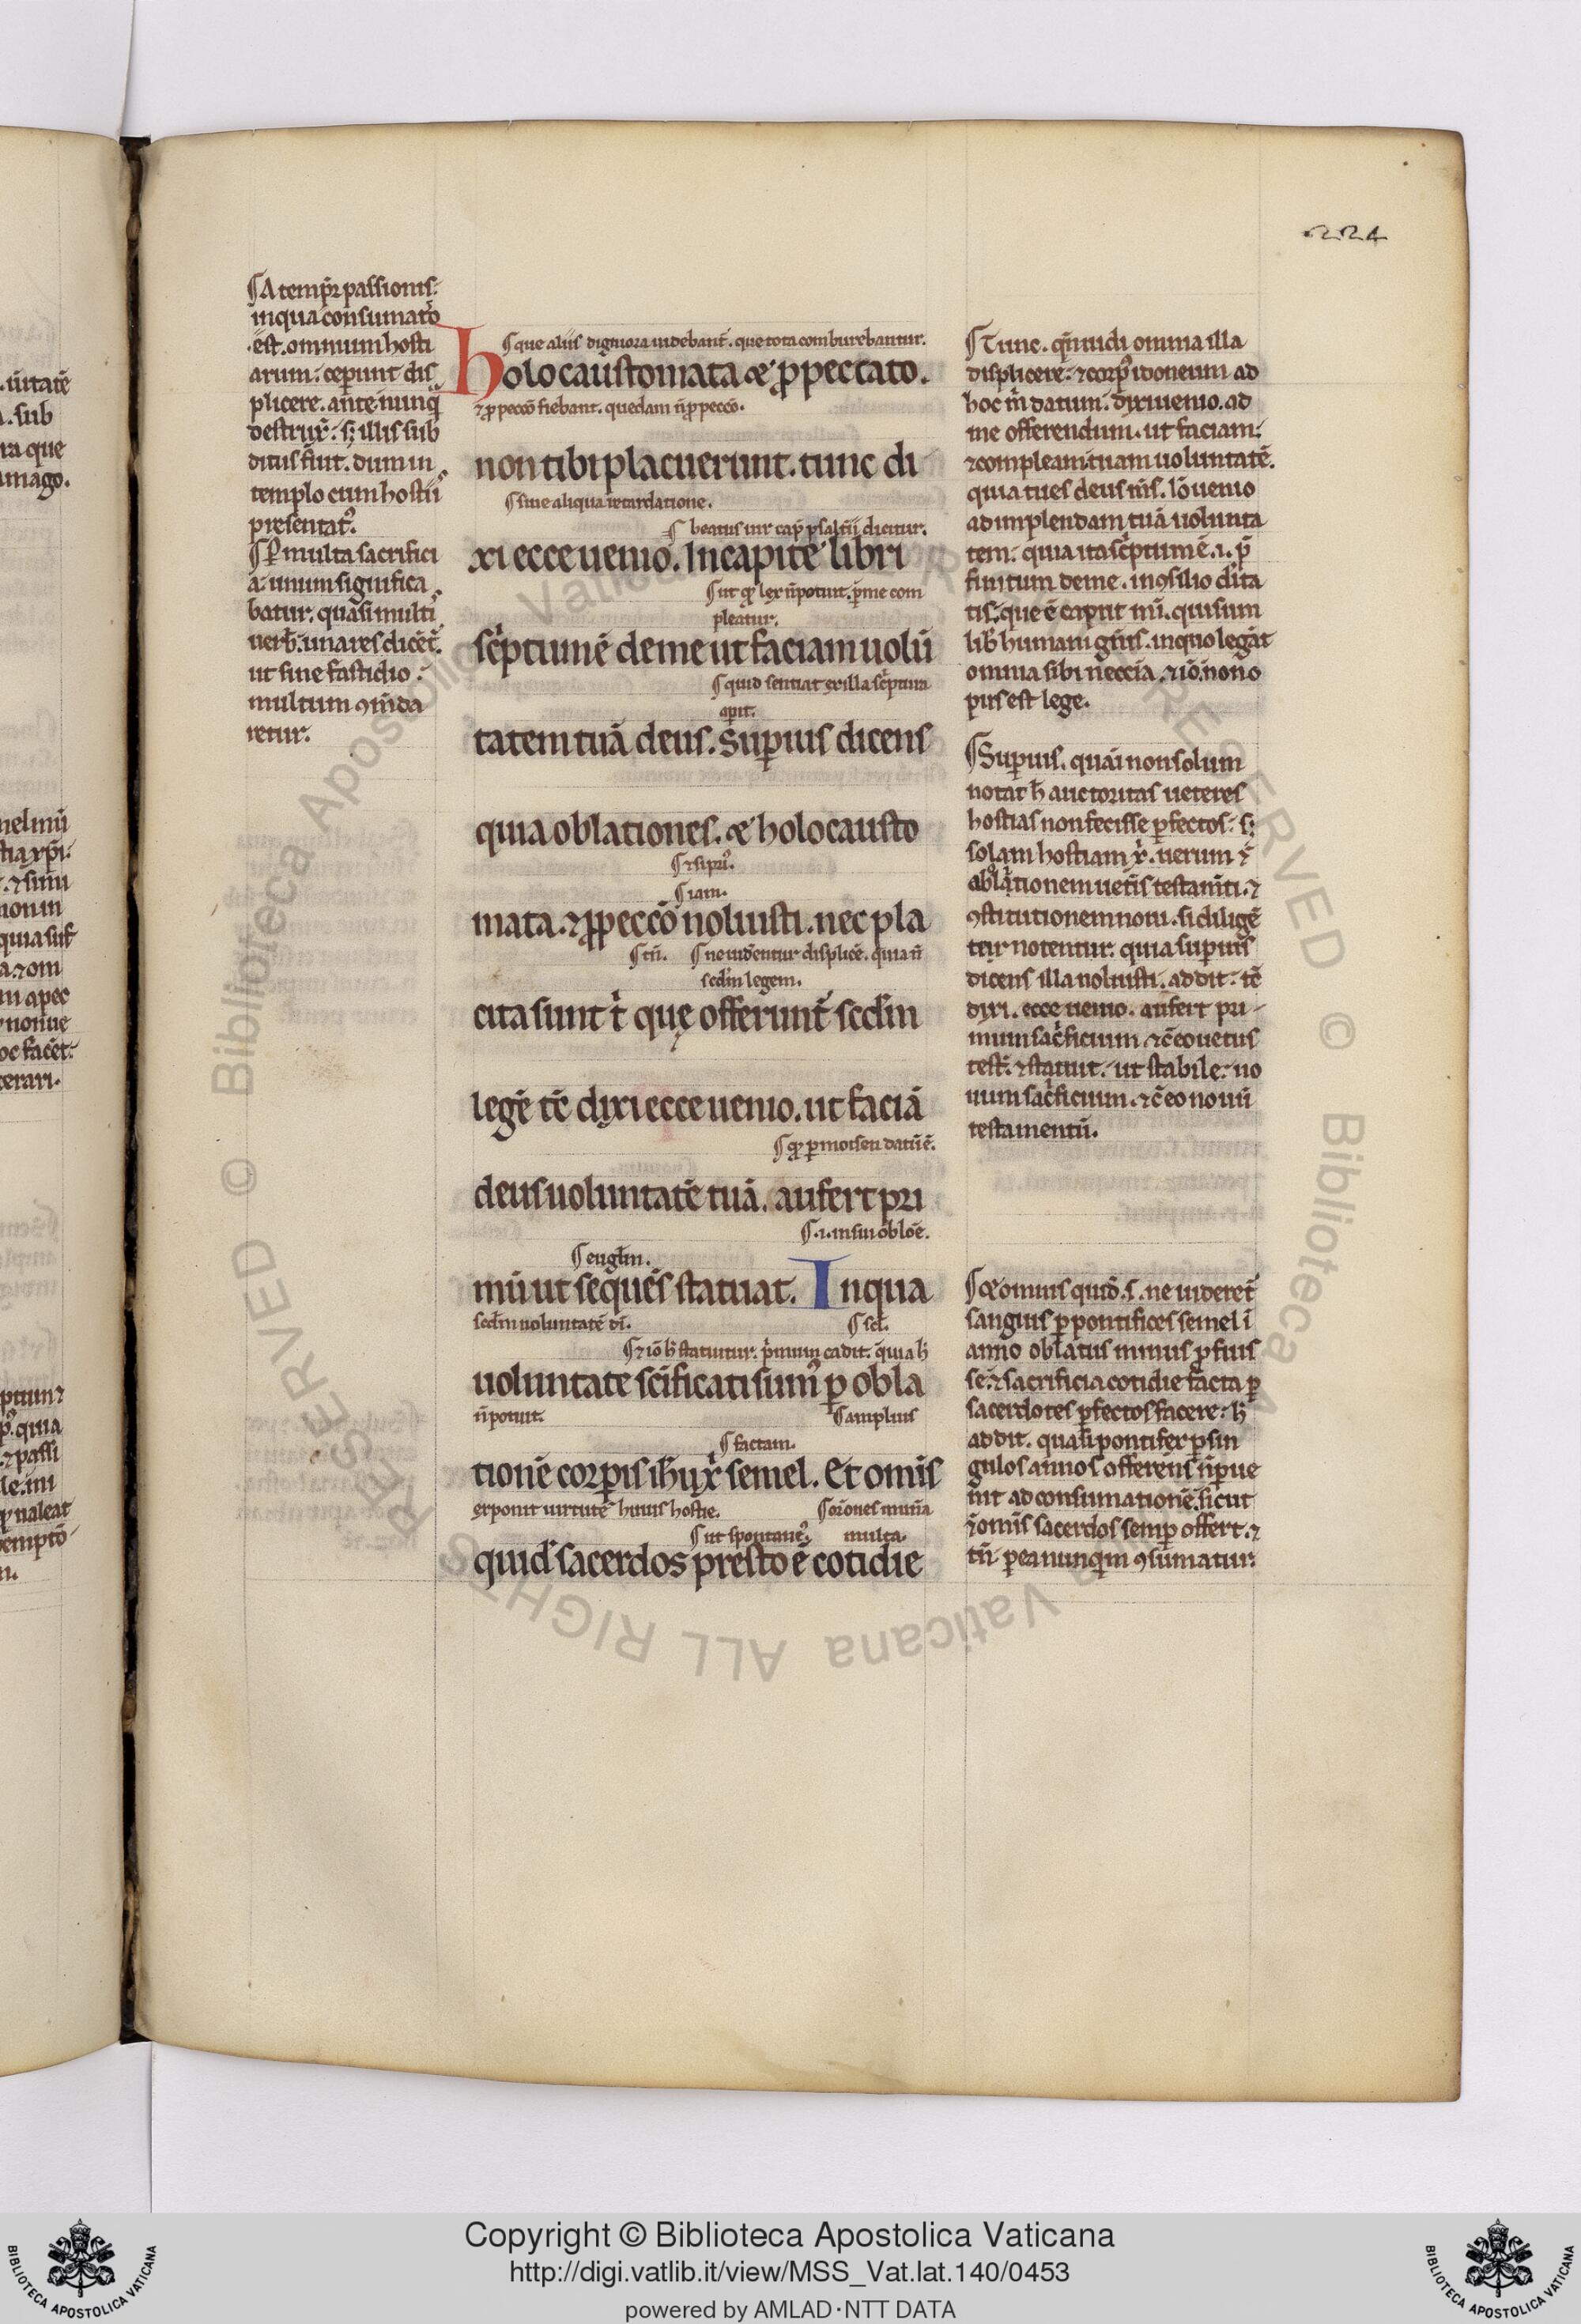 224
¶A temp̄r passionis.
in qua consumatō
.est. omnium hosti
arum. cep̄unt dis
plicere. ante nunq̄
destrux̄. s; illis sub
ditus fuit. dum in
templo cum hostiis
presentat᷒.
¶P̱ multa sacrifici
a. unum significa
batur. quasi multis
uerb̄. una res dicēt̄.
ut sine fastidio
multum ꝯm̄da
retur.
¶que aliis digniora uidebant̄. que tota comburebantur.
holocaustomata & ꝓ peccato.
⁊ꝓ peccō fiebant. quedam n̄ ꝓ peccō.
non tibi placuerunt. tunc di
¶sine aliqua retardatione.
¶beatus uir cap̄ psaltīi dicitur.
xi ecce uenio. In capite libri
¶ut qđ lex n̄ potuit. ꝑ me com
pleatur.
sc̄ptum ē de me ut faciam uolū
¶quid sentiat ex illa sc̄ptura
apit.
tatem tuā deus. Suꝑius dicens
quia oblationes. & holocausto
¶⁊ si pri᷒.
¶iam.
mata. ⁊ ꝓ peccō noluisti. nec pla
¶tn̄. ¶ne uidentur displicē. quia n̄
scd̄m legem.
cita sunt t̄ que offerunt̄ scd̄m
legē tc̄ dixi ecce uenio. ut faciā
¶qđ ꝑ moisen datū ē.
deus uoluntatē tuā. aufert pri
¶.i. in sui oblōe.
¶eugl̄m.
mū ut sequēs statuat. In qua
scd̄m uoluntatē dī. ¶scł.
¶⁊ iō h̄ statuitur. p̄mum cadit. quia h̄
uoluntate scīficati sum᷒ ꝑ obla
n̄ potuit. ¶amplius
¶factam.
tionē corꝑis ih̄u xp̄i semel. Et omīs
exponit uirtutē huius hostie. ¶or̄ones mun̄a
¶ut spontane᷒. multa.
quid̄ sacerdos presto ē cotidie
¶Tunc. q̄n uidi omnia illa
displicere. ⁊ corp᷒ idoneum ad
hoc m̄ datum. dixi uenio. ad
me offerendum. ut faciam.
⁊ compleam tuam uoluntatē.
quia tu es deus m̄s. Iō uenio
ad implendam tuā uolunta
tem. quia ita sc̄ptum ē .i. p̄
finitum de me. in ꝯsilio d̄ita
tis. que ē caput m̄i. qui sum
lib̄ humani gn̄is. in quo legāt
omnia sibi neccīa. ⁊ iō. non o
pus est lege.
¶Suꝑius. quasi non solum
notat h̄ auctoritas ueteres
hostias non fecisse ꝑfectos. s;
solam hostiam xp̄i. uerum ⁊
ablationem uetis testam̄ti. ⁊
ꝯstitutionem noui. si diligē
ter notentur. quia suꝑius
dicens illa noluisti. addit. tc̄
dixi. ecce uenio. aufert pri
mum sac̄ficium ⁊ c̄ eo uetus
test̄. ⁊ statuit. ut stabile. no
uum sac̄ficium. ⁊ c̄ eo nouū
testamentū.
¶Et omnis quid̄. s. ne uideret̄
sanguis ꝑ pontifices semel ī
anno oblatus minus ꝓfuis
se. ⁊ sacrificia cotidie facta ꝑ
sacerdotes ꝑfectos facere. h̄
addit. quasi pontifex ꝑ sin
gulos annos offerens n̄ ꝑue
nit ad consumationē. sicut
⁊ omīs sacerdos semꝑ offert. ⁊
tn̄ ꝑ ea nunq̄m ꝯsumatur.
© Biblioteca Apostolica Vaticana ALL RIGHTS RESERVED
Copyright © Biblioteca Apostolica Vaticana
http://digi.vatlib.it/view/MSS_Vat.lat.140/0453
powered by AMLAD·NTT DATA
BIBLIOTECA APOSTOLICA VATICANA
BIBLIOTECA APOSTOLICA VATICANA